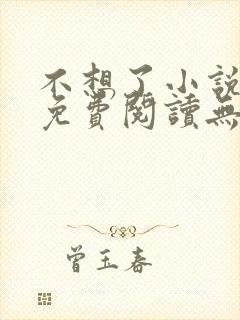 不想了小説
免費閱讀無
曾玉春